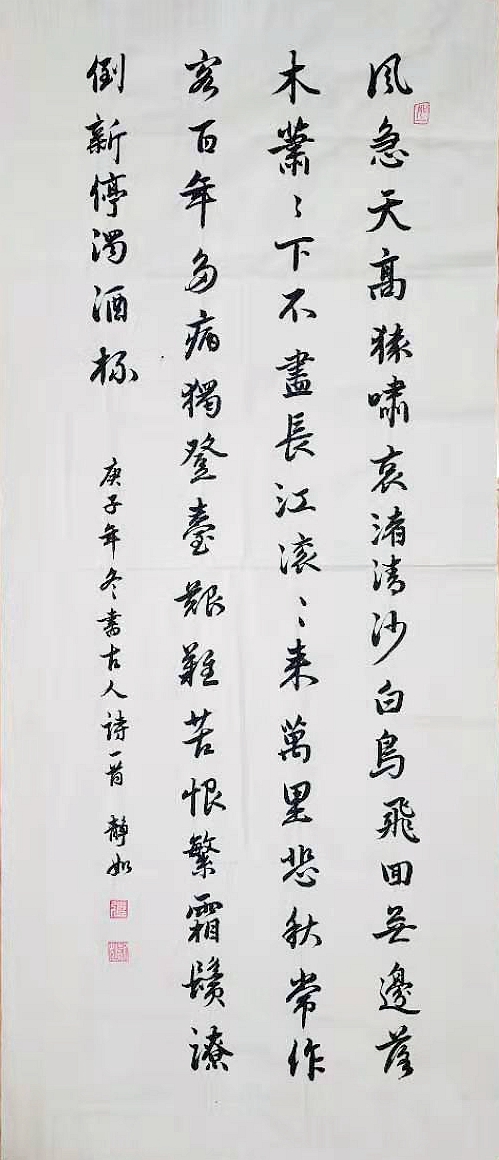 風急天高猿嘯哀渚清沙白鳥飛回無邊落
木蕭〻下不盡長江滾〻来萬里悲秋常作
客百年多病獨登臺艱難苦恨繁霜鬢潦
倒新停濁酒杯
庚子年冬書古人詩一首 靜如